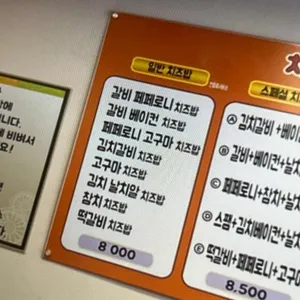 일반 치즈밥
갈비 페페로니 치즈밥
갈비 베이컨 치즈밥
페페로니 고구마 치즈밥
김치갈비 치즈밥
고구마 치즈밥
김치 날치알 치즈밥
참치 치즈밥
떡갈비 치즈밥
8 000
스페셜 치
A 김치갈비+베이
B 갈비+베이컨+날
C 페페로니+참치+날치
D 스팸+김치베이컨+날
E 떡갈비+페페로니+고구마
8.500
에 비벼서
요!